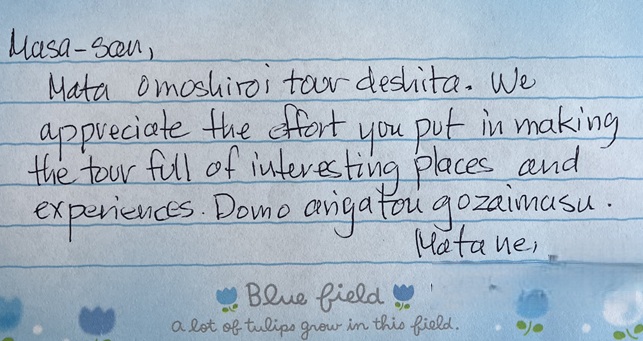 Masa-san,
Mata omoshiroi tour deshita. We
appreciate the effort you put in making
the tour full of interesting places and
experiences. Domo arigatou gozaimasu.
Mata ne,
Blue field
a lot of tulips grow in this field.